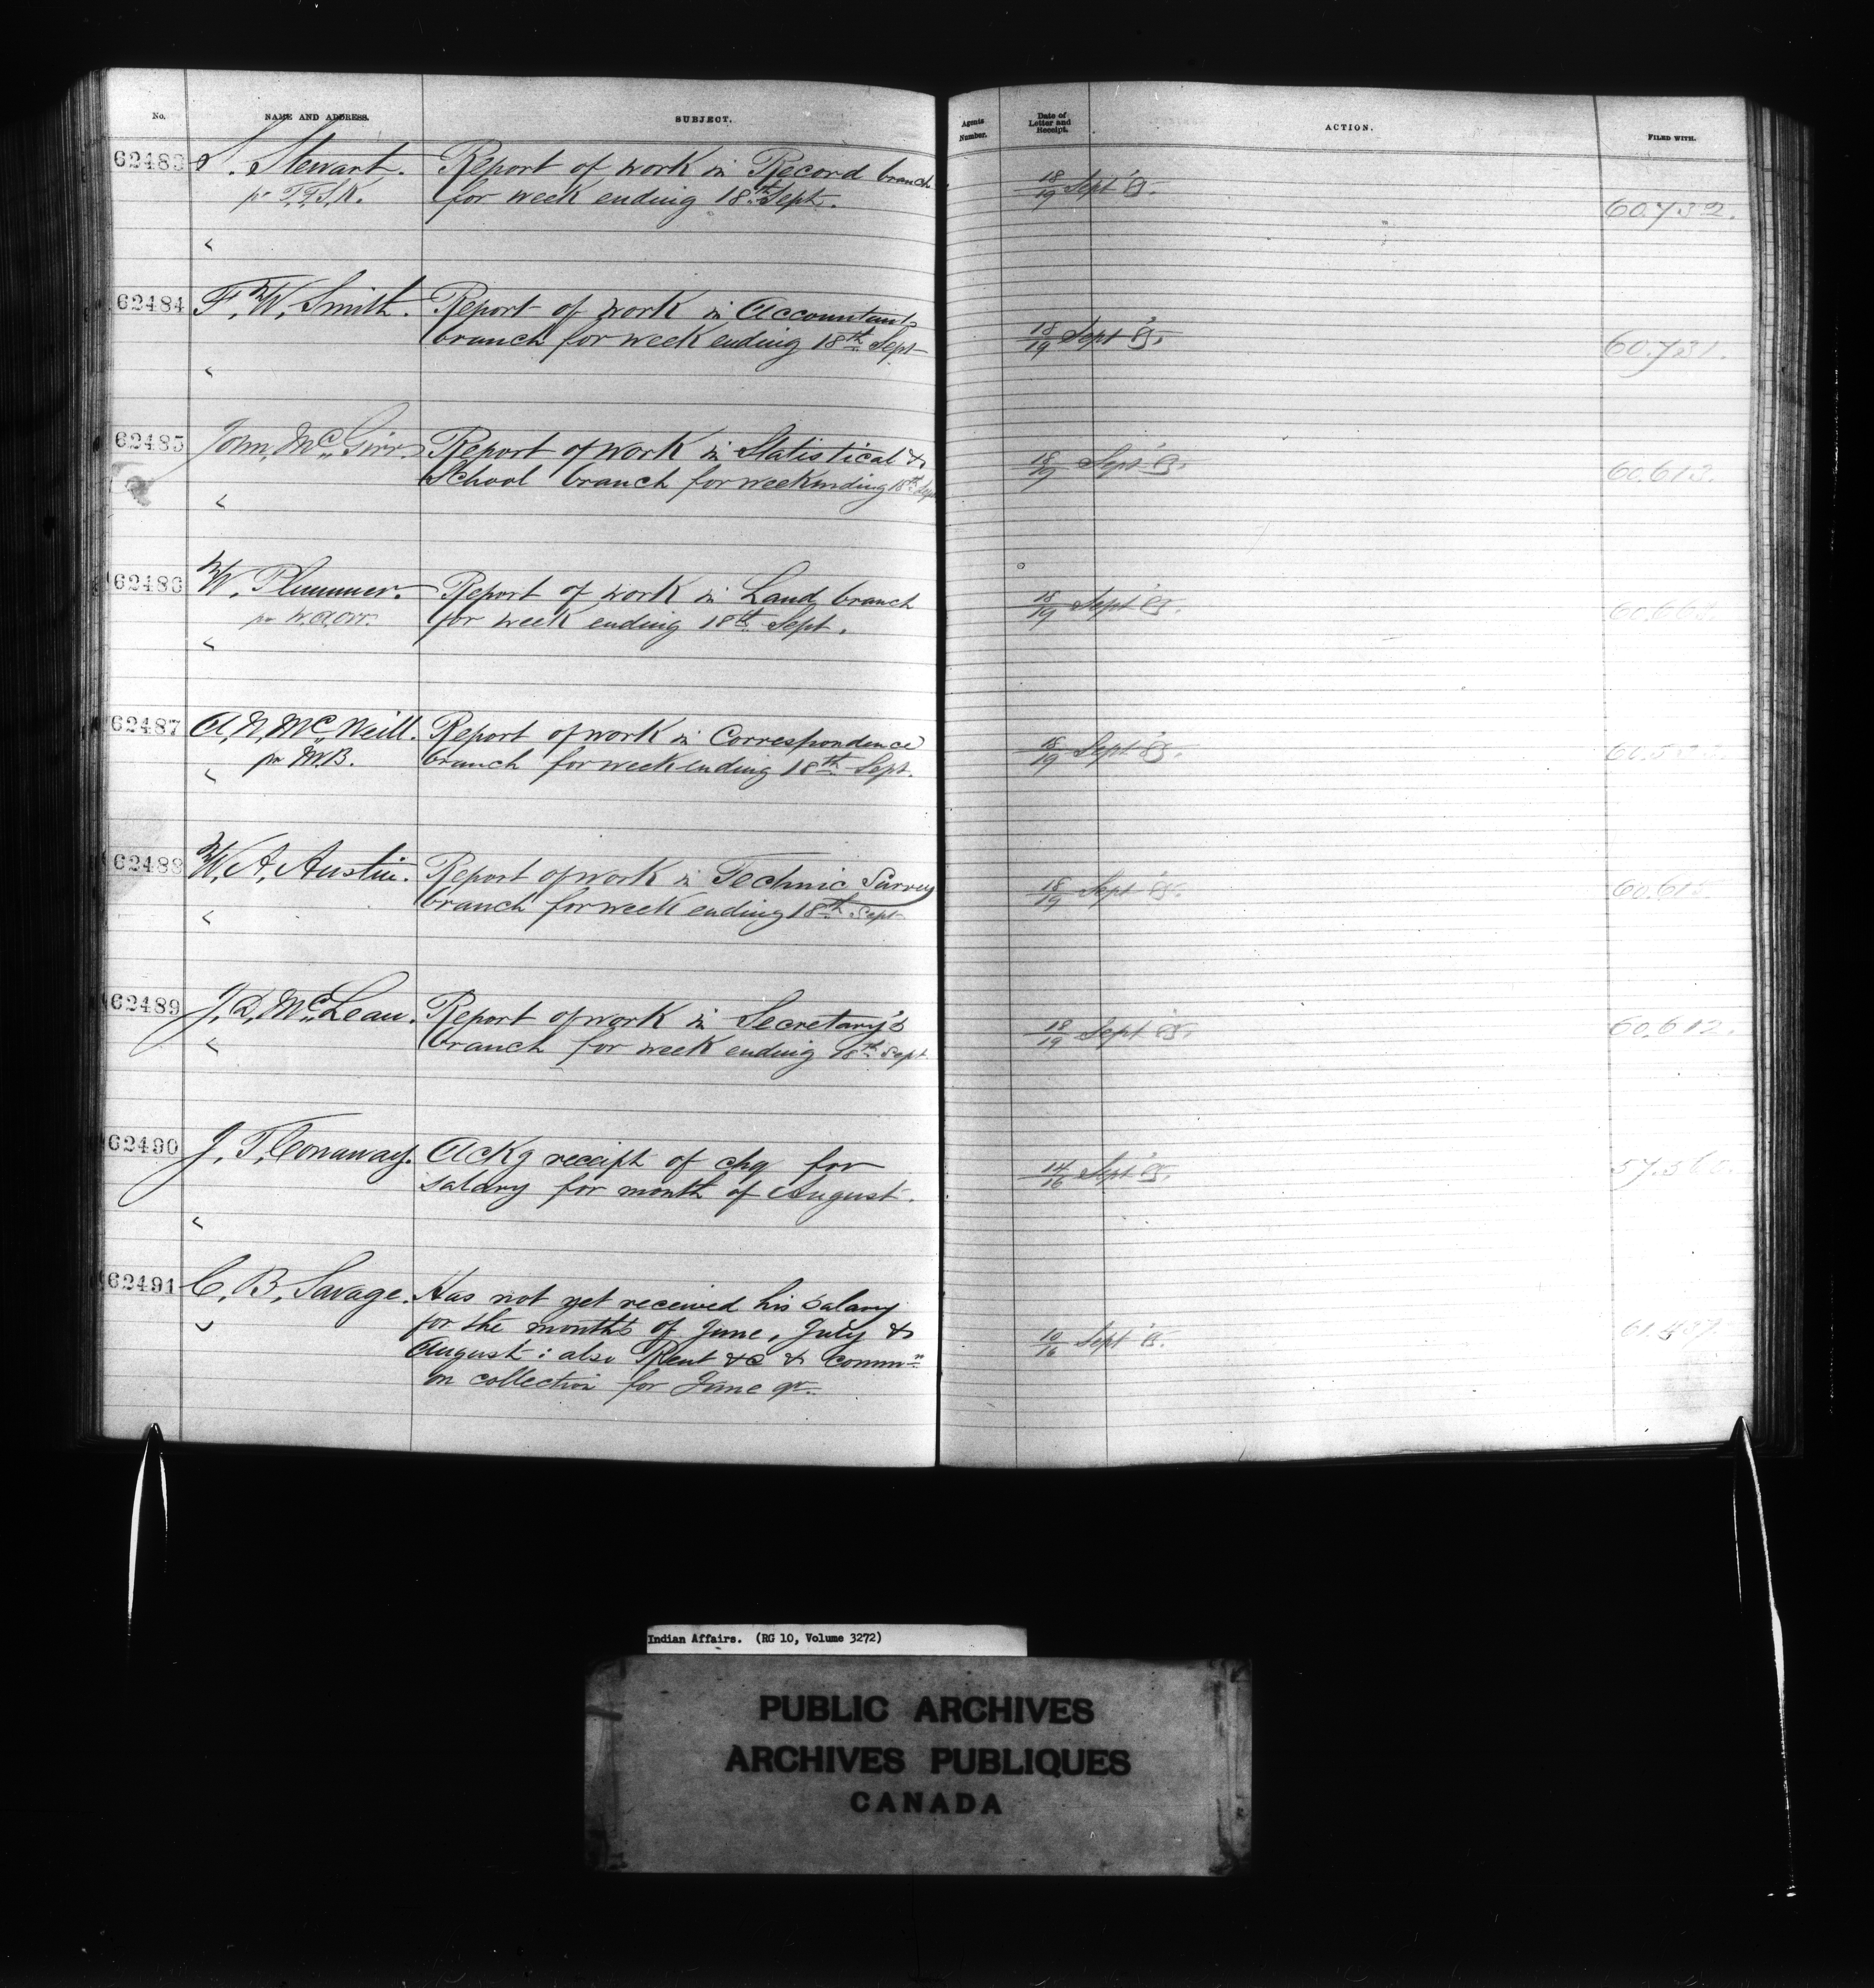 No. NAME AND ADDRESS. SUBJECT. Agents Number. Date of Letter and Receipt. ACTION. FILED WITH.
62483 S. Stewart. Report of work in Record branch
pr T.F.S.K. for week ending 18th Sept. 18/19 Sept '85. 60.732.
62484 F. W. Smith. Report of work in Accountants
branch for week ending 18th Sept 18/19 Sept '85. 60.731.
62485 John McGirr. Report of work in Statistical &
School branch for week ending 18th Sept 18/19 Sept '85. 60.613.
62486 W. Plummer. Report of work in Land branch
pr W.A.Orr. for week ending 18th Sept. 18/19 Sept '85.
62487 A. N. McNeill. Report of work in Correspondence
pr M.B. branch for week ending 18th Sept. 18/19 Sept '85.
62488 W. A. Austin. Report of work in Technic Survey
branch for week ending 18th Sept 18/19 Sept '85.
62489 J. D. McLean. Report of work in Secretary's
branch for week ending 18th Sept 18/19 Sept '85. 60.612.
62490 J. T. Conaway. Ackg receipt of chq for
salary for month of August. 14/16 Sept '85.
62491 C. B. Savage. Has not yet received his salary
for the months of June, July &
August: also Rent &c & commn 10/16 Sept '85.
on collection for June qr.
Indian Affairs. (RG 10, Volume 3272)
PUBLIC ARCHIVES
ARCHIVES PUBLIQUES
CANADA